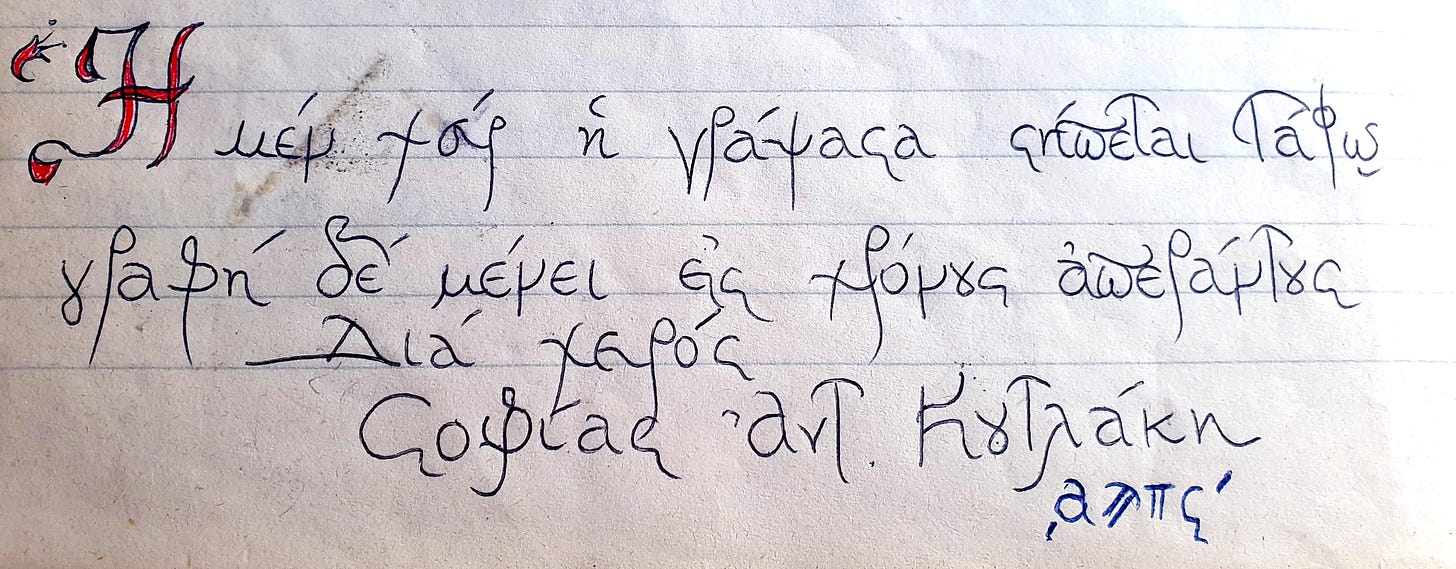 Ἡ μέν χείρ ἡ γράψασα σήπεται τάφῳ
γραφή δέ μένει εἰς χρόνους ἀπεράντους
Διά χειρός
Σοφίας Ἀντ. Κουτλάκη
͵αϡπϛʹ